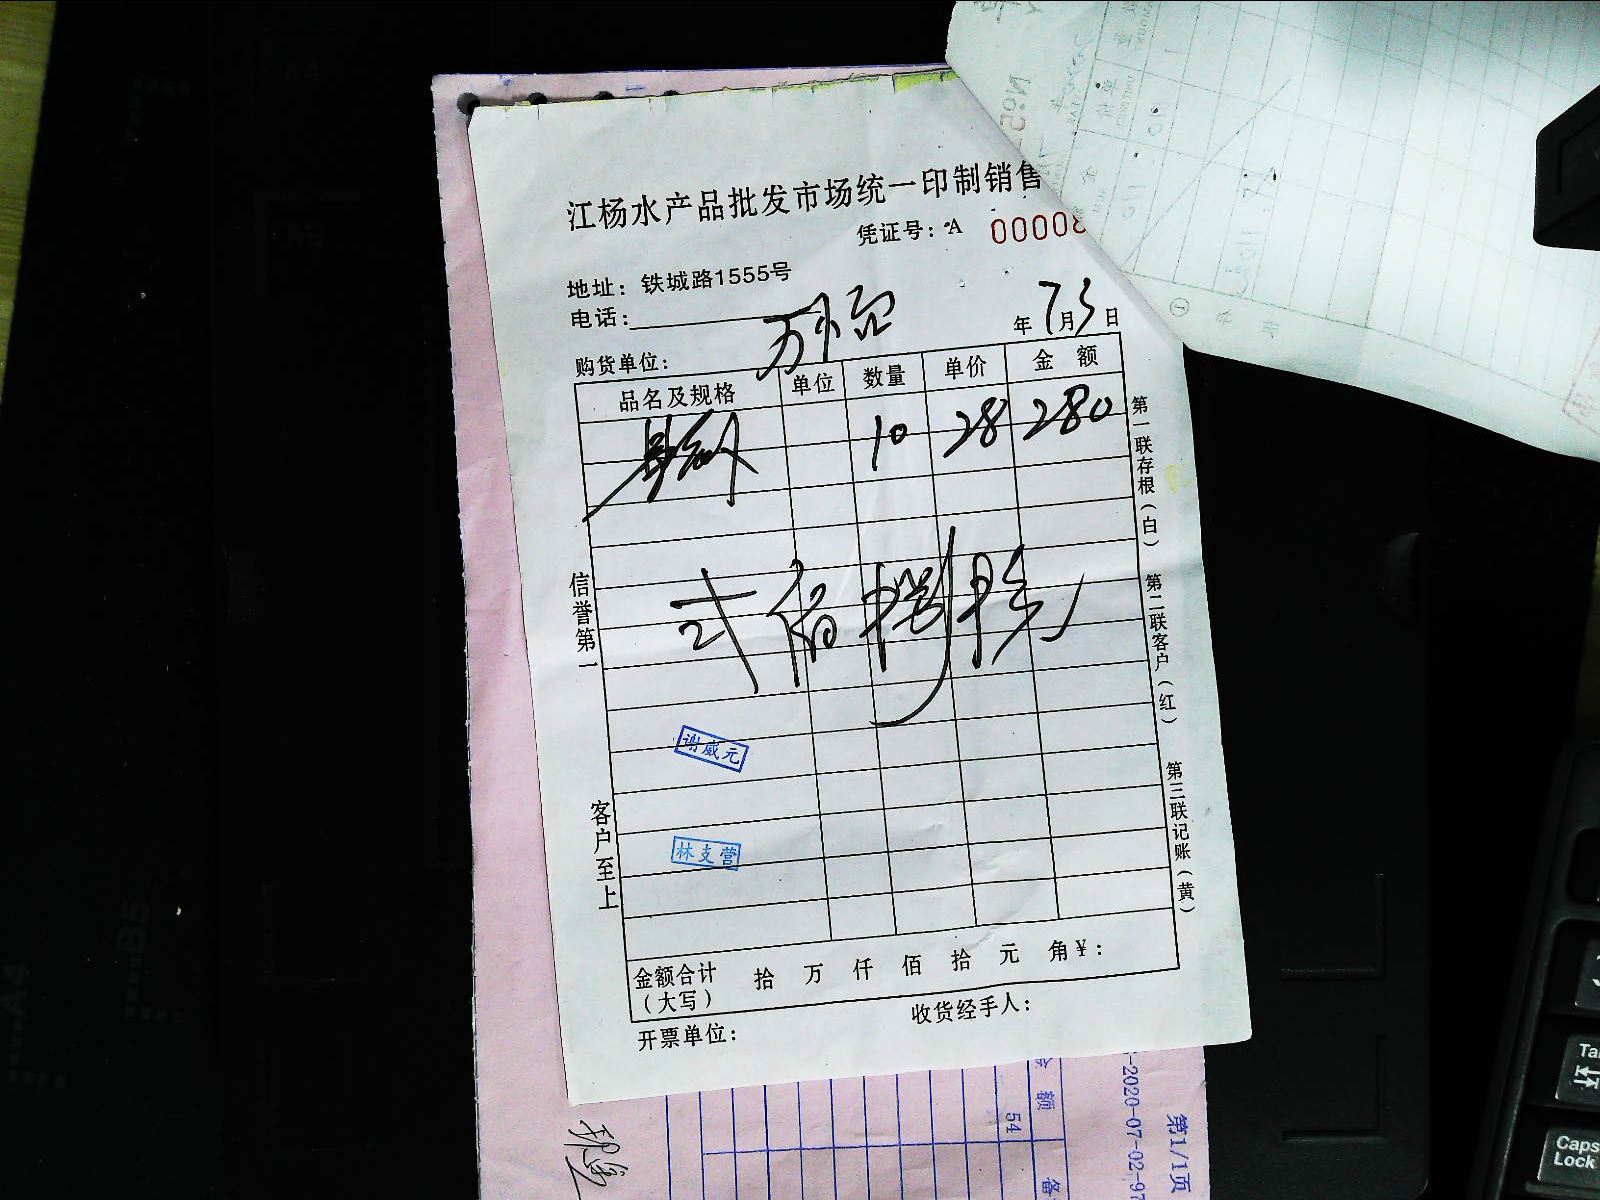 江杨水产品批发市场统一印制销售
凭证号：A 00008
地址：铁城路1555号
电话：
购货单位：
年7月3日
品名及规格 单位 数量 单价 金额
10 28 280
弍佰捌拾元
谢威元
林支营
信誉第一
客户至上
第一联存根（白）
第二联客户（红）
第三联记账（黄）
金额合计（大写） 拾 万 仟 佰 拾 元 角 ¥：
开票单位：
收货经手人：
金额
54
备
-2020-07-02-97
第1/1页
A4
B5
Caps
Lock